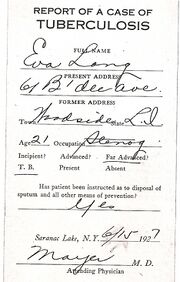 REPORT OF A CASE OF
TUBERCULOSIS
FULL NAME
Eva Long
PRESENT ADDRESS
6 B' dee Ave.
FORMER ADDRESS
Town Woodside State L.I
Age 21 Occupation Stenog.
Incipient? Advanced? Far Advanced?
T. B. Present Absent
Has patient been instructed as to disposal of
sputum and all other means of prevention?
Yes
Saranac Lake, N.Y. 6/15 1927
Mayer M. D.
Attending Physician